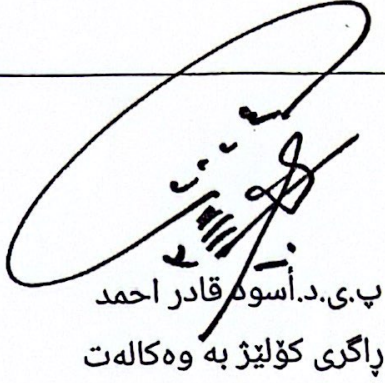 پ.ی.د.أسود قادر احمد
ڕاگری کۆلێژ بە وەکالەت